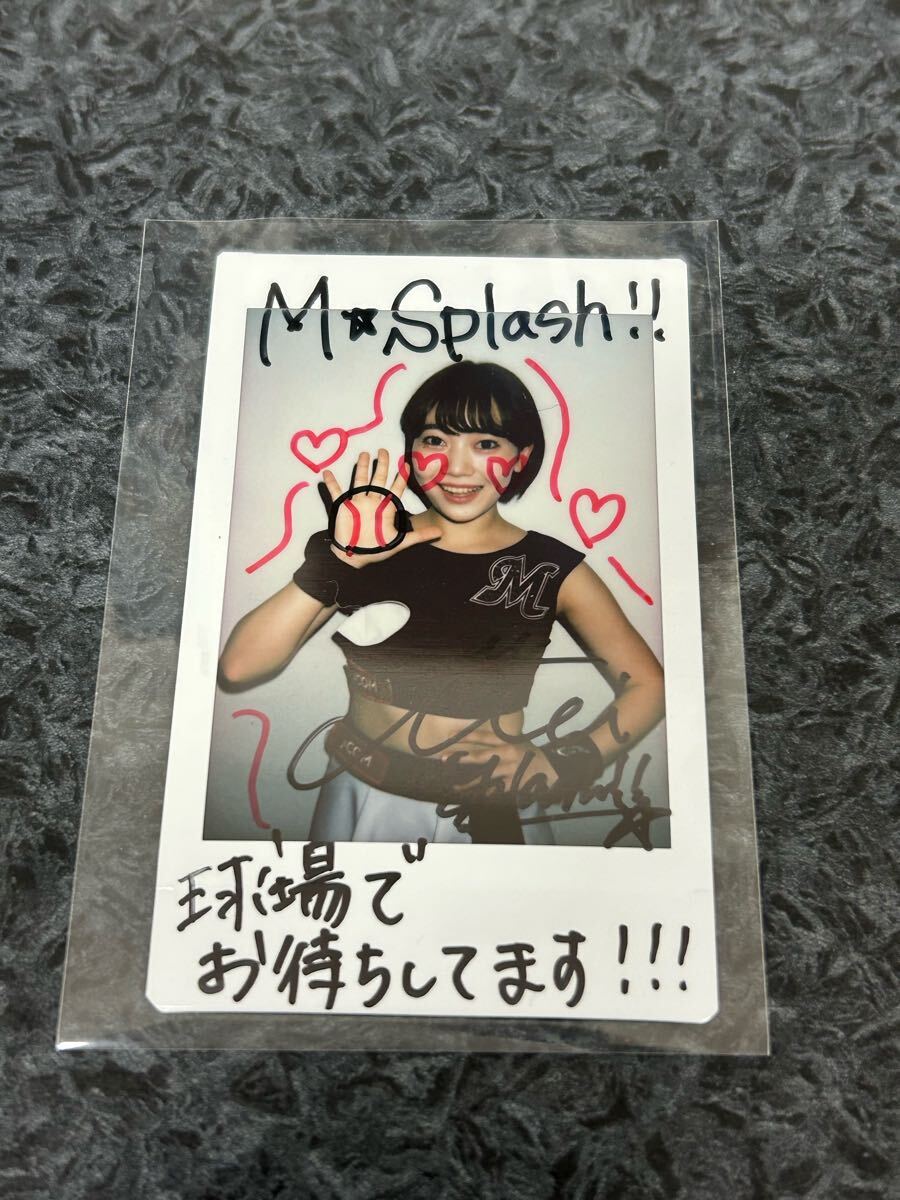 M☆Splash!!
M
Mei
球場で
お待ちしてます!!!